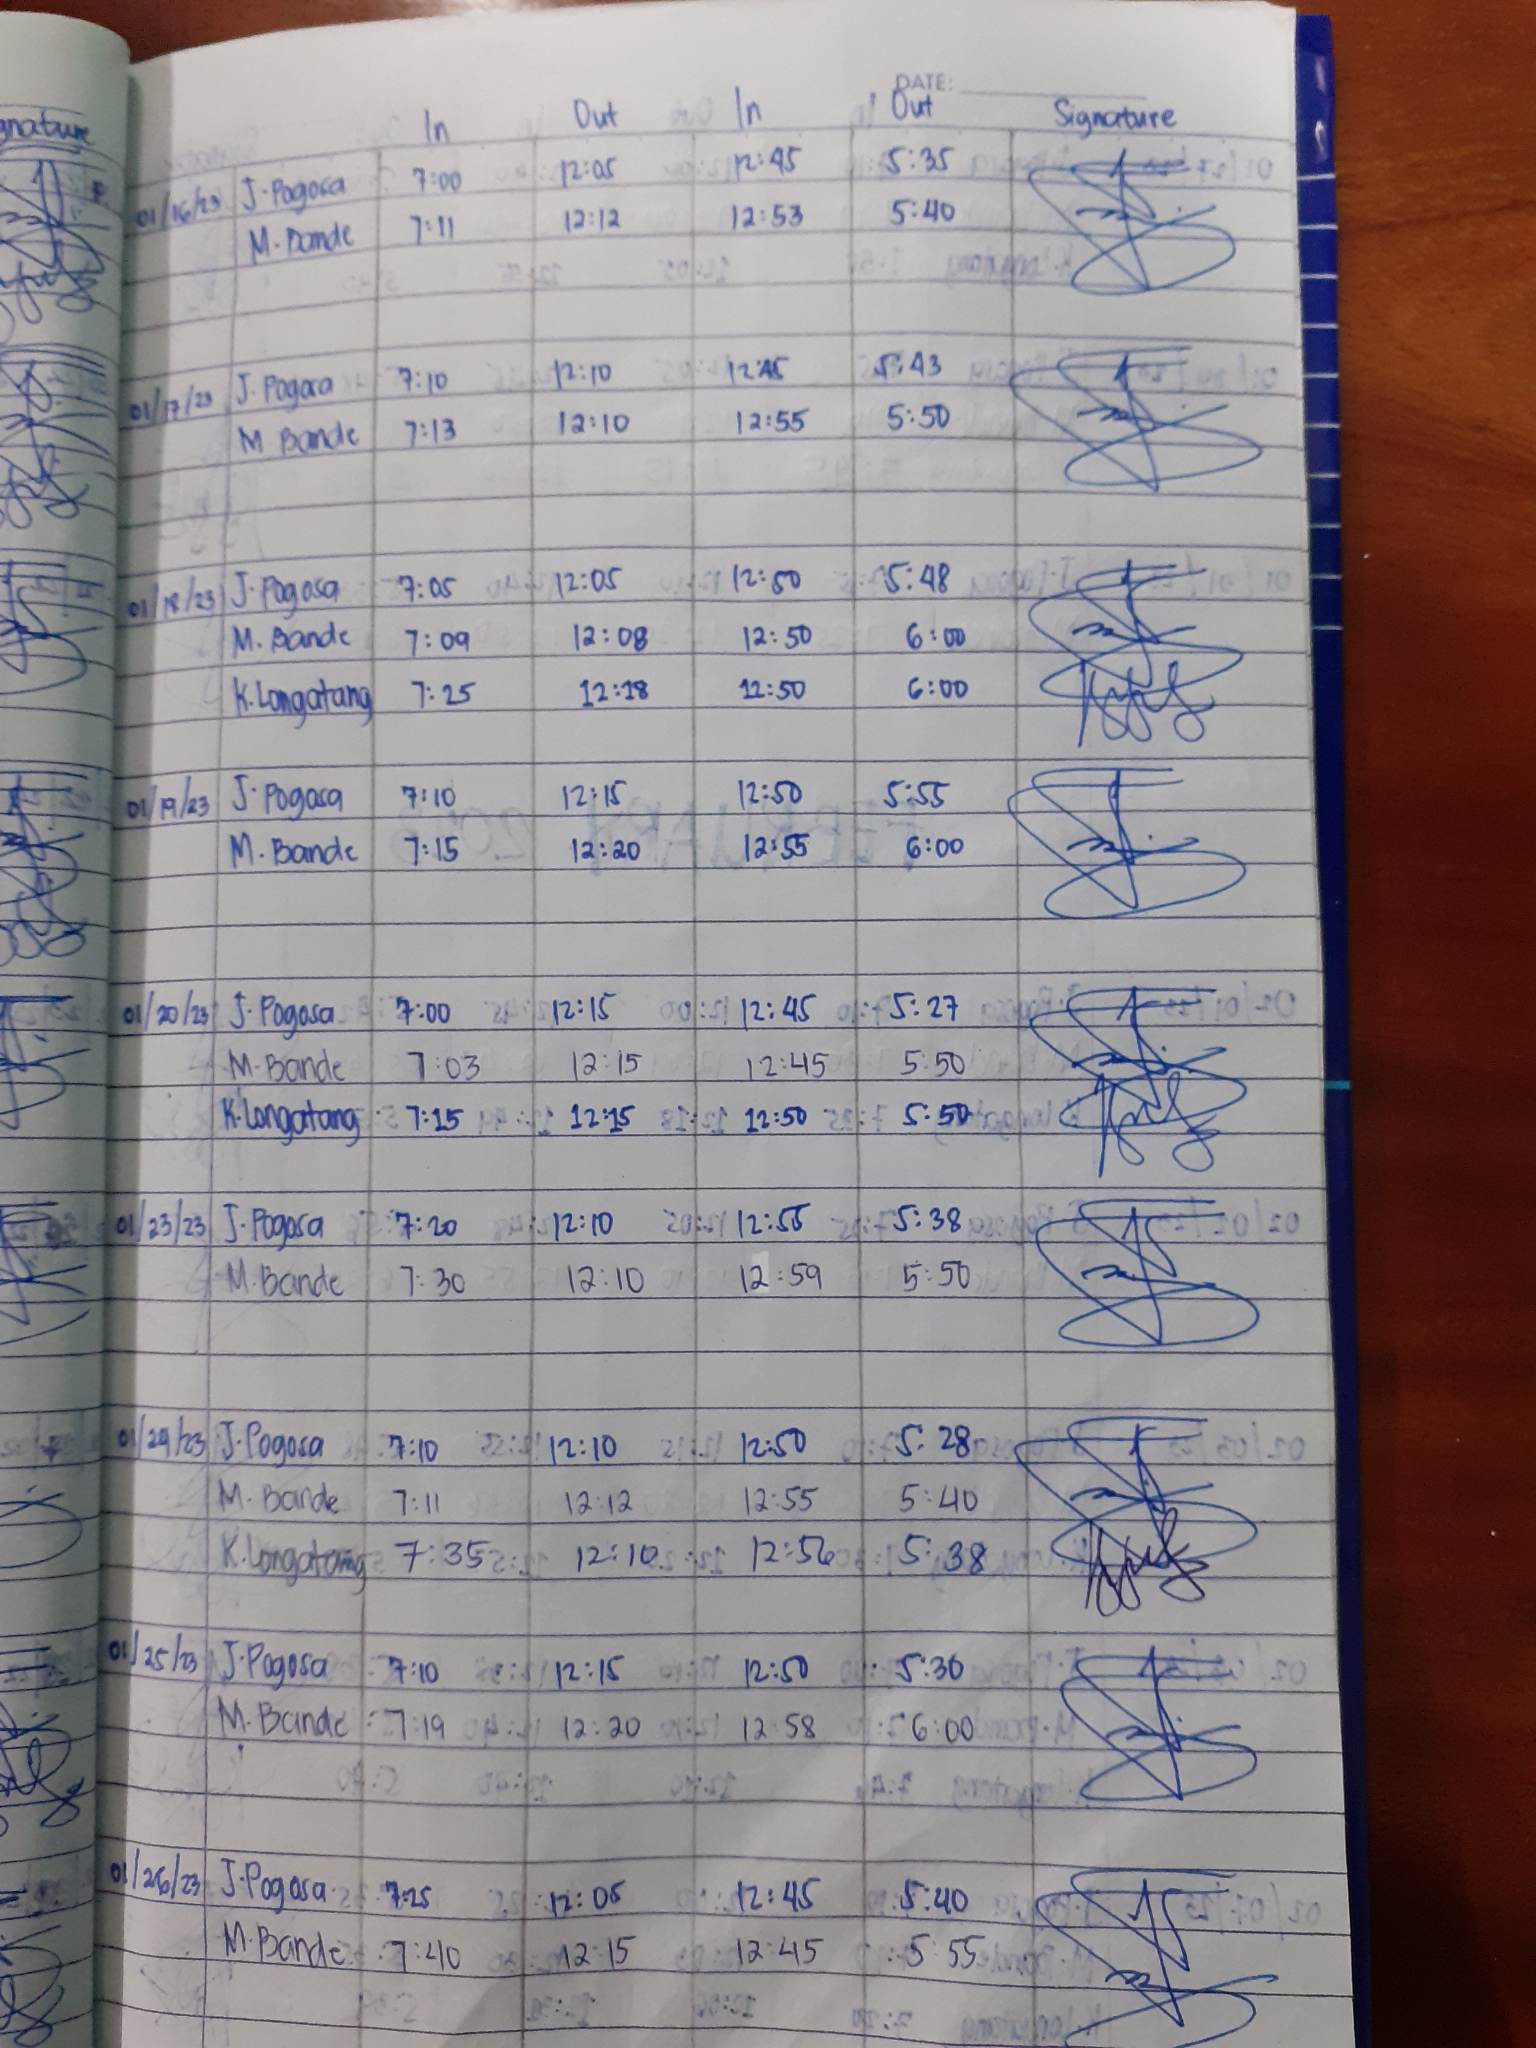 DATE:
In Out In Out Signature
gnature
01/16/23 J. Pogosa 7:00 12:05 12:45 5:35
M. Bande 7:11 12:12 12:53 5:40
01/17/23 J. Pogosa 7:10 12:10 12:45 5:43
M Bande 7:13 12:10 12:55 5:50
01/18/23 J. Pogosa 7:05 12:05 12:50 5:48
M. Bande 7:09 12:08 12:50 6:00
K. Longatang 7:25 12:18 12:50 6:00
01/19/23 J. Pogosa 7:10 12:15 12:50 5:55
M. Bande 7:15 12:20 12:55 6:00
01/20/23 J. Pogosa 7:00 12:15 12:45 5:27
M. Bande 7:03 12:15 12:45 5:50
K. Longatang 7:15 12:15 12:50 5:50
01/23/23 J. Pogosa 7:20 12:10 12:55 5:38
M. Bande 7:30 12:10 12:59 5:50
01/24/23 J. Pogosa 7:10 12:10 12:50 5:28
M. Bande 7:11 12:12 12:55 5:40
K. Longatang 7:35 12:10 12:56 5:38
01/25/23 J. Pogosa 7:10 12:15 12:50 5:36
M. Bande 7:19 12:20 12:58 6:00
01/26/23 J. Pogosa 7:25 12:05 12:45 5:40
M. Bande 7:40 12:15 12:45 5:55